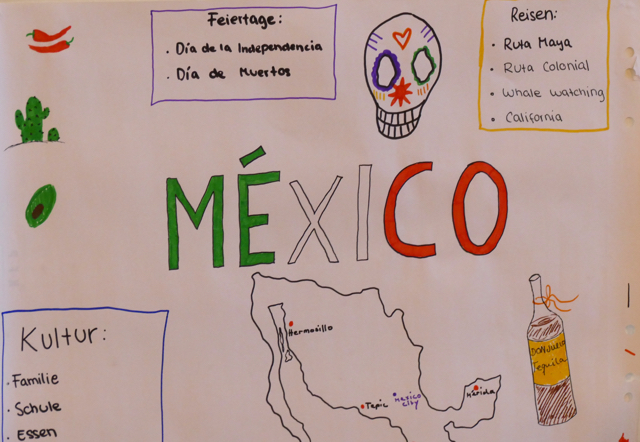 Feiertage:
· Día de la Independencia
· Día de Muertos
Reisen:
· Ruta Maya
· Ruta Colonial
· Whale watching
· California
MÉXICO
Kultur:
· Familie
· Schule
· Essen
Hermosillo
Tepic
Mexico
City
Mérida
DON JULIO
Tequila